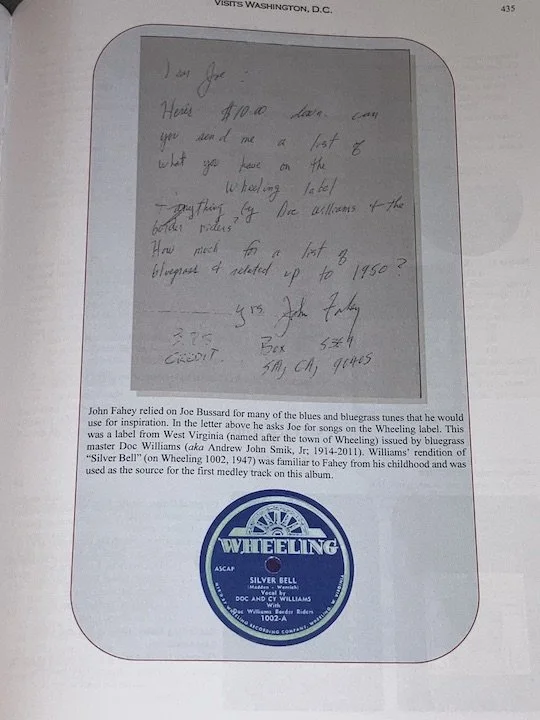 VISITS WASHINGTON, D.C.
435
Dear Joe :
Here's $10.00 down. can
you send me a list of
what you have on the
Wheeling label
– anything by Doc Williams + the
border riders?
How much for a list of
bluegrass & related up to 1950?
yrs. John Fahey
3.75
CREDIT.
Box 5364
SM, CA, 90405
John Fahey relied on Joe Bussard for many of the blues and bluegrass tunes that he would
use for inspiration. In the letter above he asks Joe for songs on the Wheeling label. This
was a label from West Virginia (named after the town of Wheeling) issued by bluegrass
master Doc Williams (aka Andrew John Smik, Jr; 1914-2011). Williams' rendition of
“Silver Bell” (on Wheeling 1002, 1947) was familiar to Fahey from his childhood and was
used as the source for the first medley track on this album.
WHEELING
ASCAP
SILVER BELL
(Madden - Wenrich)
Vocal by
DOC AND CY WILLIAMS
With
Doc Williams Border Riders
1002-A
RECORDING COMPANY, WHEELING, W.